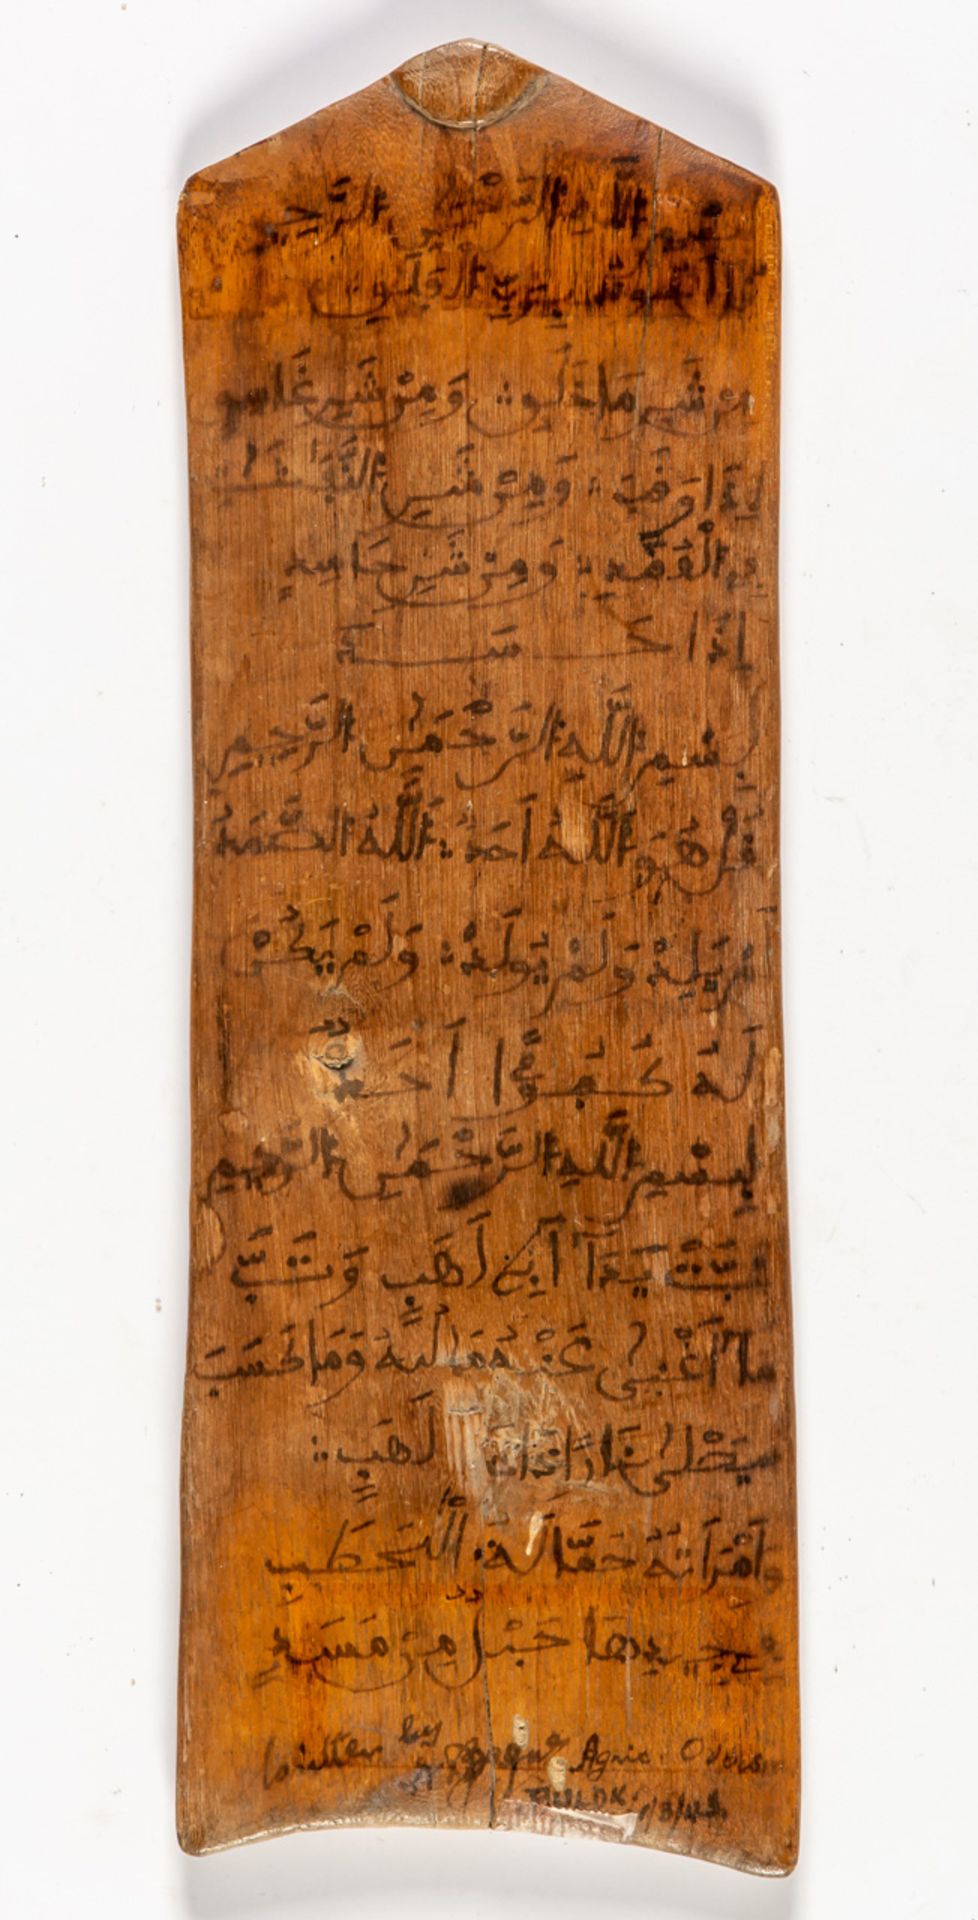 بسم الله الرحمن الرحيم
قل اعوذ برب الفلق
من شر ما خلق ومن شر غاسق
اذا وقب ومن شر النفثت
في العقد ومن شر حاسد
إذا حسد
بسم الله الرحمن الرحيم
قل هو الله احد الله الصمد
لم يلد ولم يولد ولم يكن
له كفوا احد
بسم الله الرحمن الرحيم
تبت يدا ابي لهب وتب
ما اغنى عنه ماله وما كسب
سيصلى نارا ذات لهب
وامراته حمالة الحطب
في جيدها حبل من مسد
Written by Agric.
1/3/43